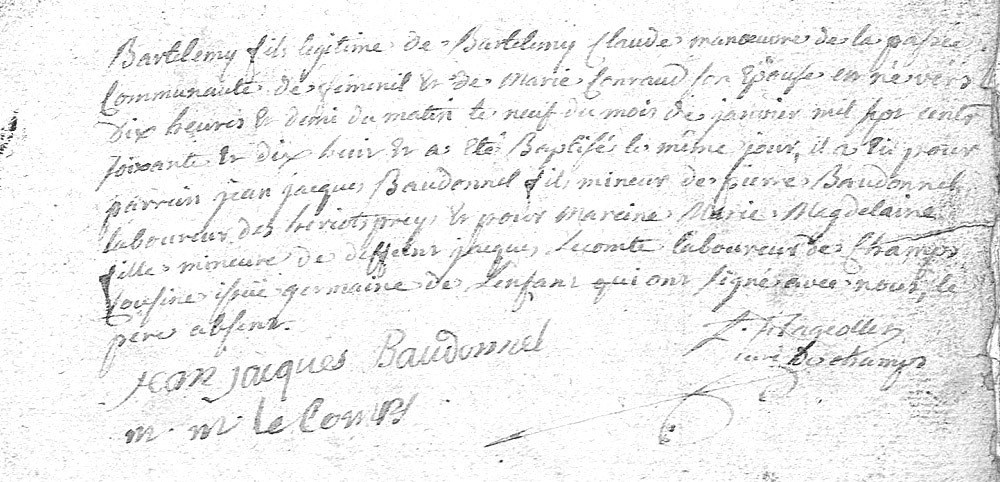 Bartelemy fils legitime de Bartelemy Claude manœuvre de la
Communauté de & de Marie Conraud son Epouse est né vers
dix heures & demi du matin le neuf du mois de janvier mil sept cents
soixante & dix huit & a eté Baptisé le même jour, il a eu pour
parrain jean jacques Baudonnel fils mineur de pierre Baudonnel,
laboureur des & pour Mareine Marie Magdelaine
fille mineure de deffunt jacques Lecomte laboureur de Champs
Cousine issüe germaine de L'enfant qui ont signé avec nous, le
pere absent.
jean jacques Baudonnel
m m le Comte
curé De champs